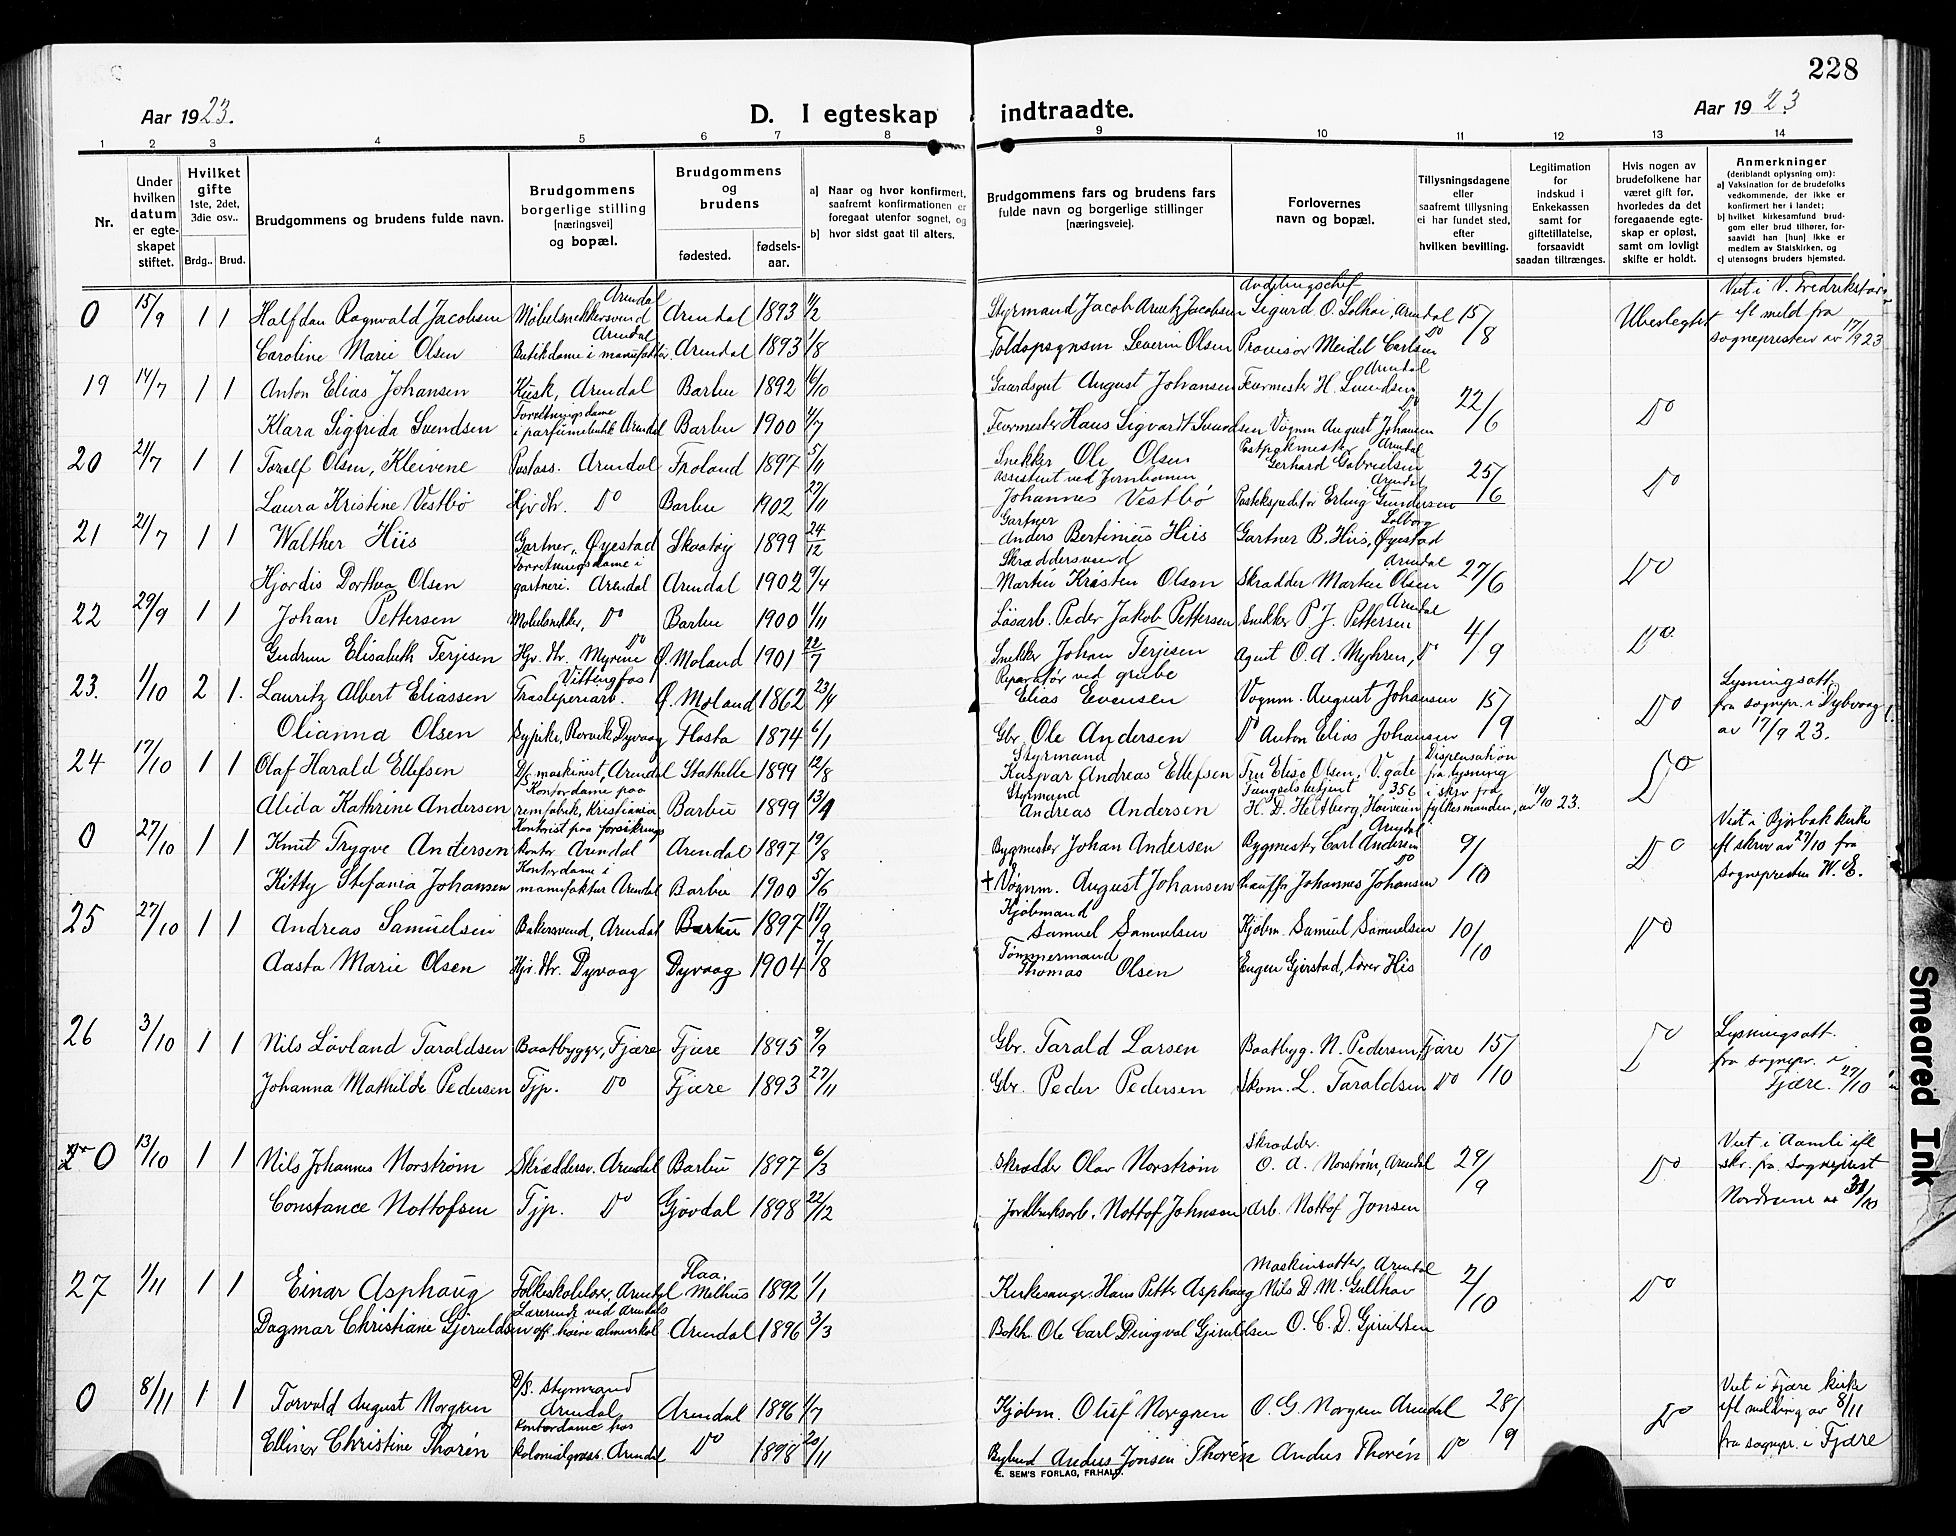 228
Aar 1923.
D. I egteskap indtraadte.
Aar 1923
1 2 3 4 5 6 7 8 9 10 11 12 13 14
Nr.
Under hvilken datum er egteskapet stiftet.
Hvilket gifte 1ste, 2det, 3die osv..
Brdg.. Brud.
Brudgommens og brudens fulde navn.
Brudgommens borgerlige stilling [næringsvei] og bopæl.
Brudgommens og brudens
fødested.
fødsels-aar.
a) Naar og hvor konfirmert, saafremt konfirmationen er foregaat utenfor sognet, og
b) hvor sidst gaat til alters.
Brudgommens fars og brudens fars fulde navn og borgerlige stillinger [næringsveie].
Forlovernes navn og bopæl.
Tillysningsdagene eller saafremt tillysning ei har fundet sted, efter hvilken bevilling.
Legitimation for indskud i Enkekassen samt for giftetillatelse, forsaavidt saadan tiltrænges.
Hvis nogen av brudefolkene har været gift før, hvorledes da det foregaaende egteskap er opløst, samt om lovligt skifte er holdt.
Anmerkninger (deriblandt oplysning om):
a) Vaksination for de brudefolks vedkommende, der ikke er konfirmert her i landet;
b) hvilket kirkesamfund brudgom eller brud tilhører, forsaavidt han [hun] ikke er medlem av Statskirken, og
c) utensogns bruders hjemsted.
0 15/9 1 1 Halfdan Ragnvald Jacobsen Møbelsnekkersvend Arendal Arendal 1893 11/2 Styrmand Jacob Arentz Jacobsen Avdelingschef Sigurd O. Solhøi, Arendal 15/8 Ubeslegtet Viet i V. Fredrikstad efl meld fra sognepresten av 17/9 23
Caroline Marie Olsen Butikdame i manufaktur, Arendal Arendal 1893 1/8 Toldopsynsm Severin Olsen Provisor Meidel Carlsen Do
19 14/7 1 1 Anton Elias Johansen Kusk, Arendal Barbu 1892 16/10 Gaardsgut August Johansen Feiermester H. Svendsen Arendal 22/6 Do
Klara Sigfrida Svendsen Forretningsdame i parfumebutik Arendal Barbu 1900 4/7 Feiermester Hans Sigvardt Svendsen Vognm August Johansen Do
20 21/7 1 1 Toralf Olsen, Kleivene Postass. Arendal Froland 1897 5/11 Snekker Ole Olsen Postpakmester Gerhard Gabrielsen Arendal 25/6 Do
Laura Kristine Vestbø Hjv. dtr. Do Barbu 1902 27/11 Assistent ved Jernbanen Johannes Vestbø Postekspeditør Erling Gundersen Arendal
21 21/7 1 1 Walther Hiis Gartner, Øyestad Skaatøy 1899 24/12 Gartner Anders Bertinius Hiis Gartner B. Hiis, Solborg Øyestad 27/6 Do
Hjordis Dorthea Olsen Forretningsdame i gartneri. Arendal Arendal 1902 9/4 Skræddersvend Martin Kristen Olson Skrædder Martin Olsen Arendal
22 29/9 1 1 Johan Pettersen Møbelsnekker, Do Barbu 1900 1/11 Løsarb. Peder Jakob Pettersen Snekker P. J. Pettersen Arendal 4/9 Do
Gudrun Elisabeth Terjesen Hjv. dtr. Myrene Do Ø. Moland 1901 22/7 Snekker Johan Terjesen Agent O. A. Myhren, Do
23. 1/10 2 1. Lauritz Albert Eliassen Træsliperiarb. Vittingfos Ø. Moland 1862 23/4 Reparatør ved grube Elias Evensen Vognm. August Johansen 15/9 Do Lysningsatt. fra sognepr. i Dybvaag av 17/9 23.
Olianna Olsen Sypike, Rørvik Dyvaag Flosta 1874 6/1 Gbr. Ole Andersen Do Anton Elias Johansen
24 17/10 1 1 Olaf Harald Ellefsen D/S maskinist, Arendal Stathelle 1899 12/8 Styrmand Kaspar Andreas Ellefsen Fru Elise Olsen, V. gate 356 Dispensation fra lysning i skriv fra fylkesmanden, av 19/10 23. Do
Alida Kathrine Andersen Kontordame paa remfabrik, Kristiania Barbu 1899 Styrmand Andreas Andersen Fængselsbetjent H. D. Heltberg, Høiveien
0 27/10 1 1 Knut Trygve Andersen Kontorist paa forsikringskontor Arendal Arendal 1897 19/8 Bygmester Johan Andersen Bygmester Carl Andersen Arendal 9/10 Do Viet i Bjorbæk kirke efl skriv av 27/10 fra sognepresten W. E.
Kitty Stefania Johansen Kontordame i manufaktur Arendal Barbu 1900 5/6 + Vognm. August Johansen Chauffør Johannes Johansen Do
25 27/10 1 1 Andreas Samuelsen Bakersvend, Arendal Barbu 1897 17/9 Kjøbmand Samuel Samuelsen Kjøbm. Samuel Samuelsen 10/10 Do
Aasta Marie Olsen Hjv. dtr. Dyvaag Dyvaag 1904 Tømmermand Thomas Olsen Eugen Gjerstad, lærer His
26 3/10 1 1 Nils Løvland Taraldsen Baatbygger, Fjære Fjære 1895 9/9 Gbr. Tarald Larsen Baatbyg. N. Pedersen, Fjære 15/10 Do Lysningsatt. fra sognepr. i Fjære. 27/10
Johanna Mathilde Pedersen Tjp. Do Fjære 1893 27/11 Gbr. Peder Pedersen Skom. L. Taraldsen Do
0 13/10 1 1 Nils Johannes Norstrøm Skræddersv. Arendal Barbu 1897 6/3 Skrædder Olav Norstrøm Skrædder. O. A. Norstrøm, Arendal 29/9 Do Viet i Aamli efl skr. fra Sogneprest Nordrum av 31/10
Constance Nottofsen Tjp. Do Gjøvdal 1898 22/12 Jordbruksarb. Nottof Johnsen Arb. Nottof Jonsen
27 1/11 1 1 Einar Asphaug Folkeskolelærer, Arendal Flaa. Melhus 1892 1/1 Kirkesanger Hans Petter Asphaug Maskinsætter, Arendal Nils D. M. Gullhav 2/10 Do
Dagmar Christiane Gjeruldsen Lærerinde ved Arendals off. høiere almenskol Arendal 1896 3/3 Bokh. Ole Carl Dingval Gjeruldsen O. C. D. Gjeruldsen
0 8/11 1 1 Torvald August Norgren D/S. Styrmand Arendal Arendal 1896 1/7 Kjøbm. Oluf Norgren O. G. Norgren Arendal 28/9 Do Viet i Fjære kirke efl melding av 8/11 fra sognepr. i Fjære
Ellinor Christine Thorén Kontordame hos kolonialgross. Arendal Do 1898 20/11 Bybud Anders Jonsen Thorén Anders Thorén Do
E. SEM'S FORLAG, FR.HALD.
Smeared Ink